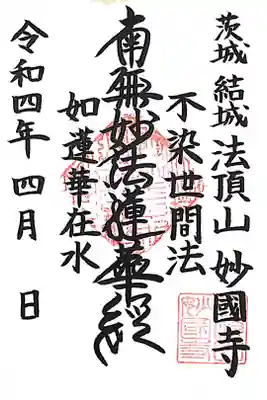 茨城 結城 法頂山 妙國寺
不染世間法
南無妙法蓮華経
如蓮華在水
令和四年 四月 日